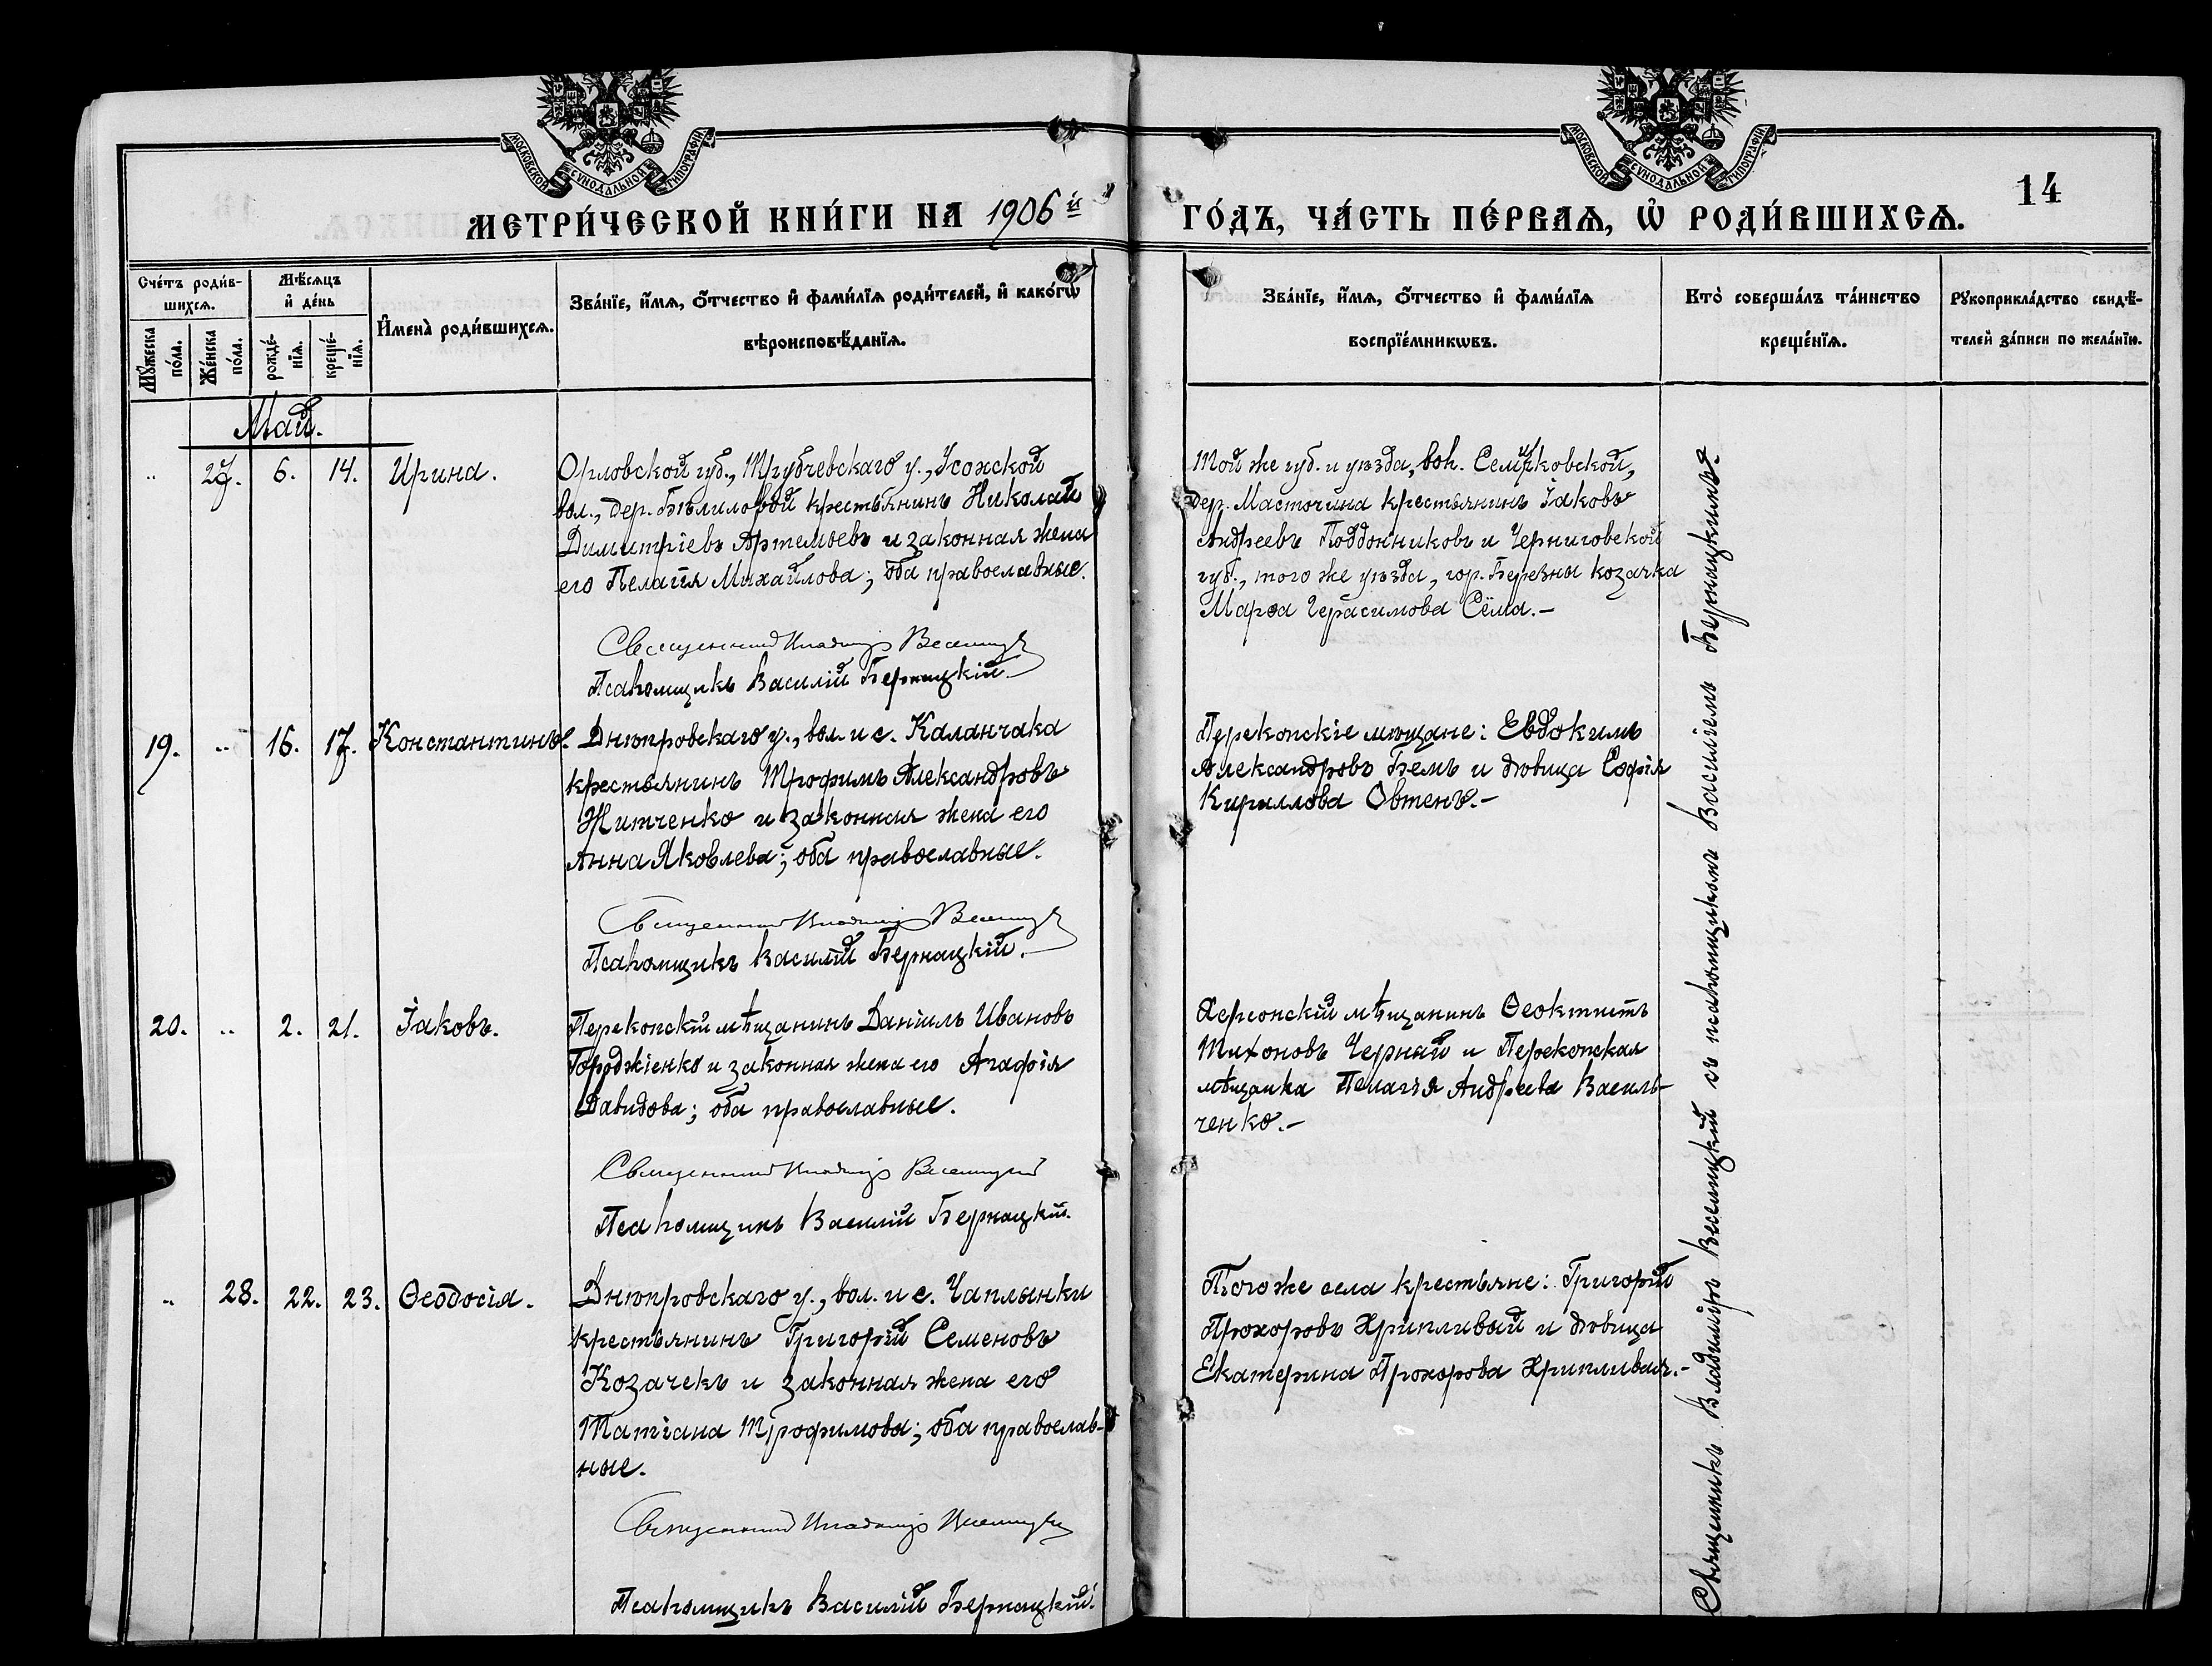 МОСКОВСКОЙ СѴНОДАЛЬНОЙ ТИПОГРАФІИ
МОСКОВСКОЙ СѴНОДАЛЬНОЙ ТИПОГРАФІИ
14
МЕТРИ́ЧЕСКОЙ КНИ́ГИ НА 1906 й ГО́ДЪ, ЧА́СТЬ ПЕ́РВАѦ, Ѡ҆ РОДИ́ВШИХСѦ.
Сче́тъ роди́в-
шихсѧ.
Мꙋ́жеска по́ла.
Же́нска по́ла.
Мѣ́сѧцъ
и҆ де́нь
рожде́-
нїѧ.
креще́-
нїѧ.
И҆мена̀ роди́вшихсѧ.
Зва́нїе, и҆́мѧ, ѻ҆́тчество и҆ фами́лїѧ роди́телей, и҆ како́гѡ
вѣроисповѣ́данїѧ.
Зва́нїе, и҆́мѧ, ѻ҆́тчество и҆ фами́лїѧ
воспрїе́мникѡвъ.
Кто̀ соверша́лъ та́инство
креще́нїѧ.
Рꙋкоприкла́дство свидѣ́-
телей за́писи по жела́нїю.
Май.
" 27. 6. 14. Ирина.
Орловской губ., Трубчевскаго у., Усожской
вол., дер. Бѣлиловой крестьянинъ Николай
Димитріевъ Артемьевъ и законная жена
его Пелагія Михайлова; оба православные.
Священникъ Владиміръ Веселицкій
Псаломщикъ Василій Бернацкій.
Той же губ. и уѣзда, вол.
дер. крестьянинъ Іаковъ
Андреевъ Поддонниковъ и Черниговской
губ., того же уѣзда, гор. Березны козачка
Марѳа Герасимова Сёма.-
19. " 16. 17. Константинъ.
Днѣпровскаго у., вол. и с. Каланчака
крестьянинъ Трофимъ Александровъ
Житченко и законная жена его
Анна Яковлева; оба православные.
Священникъ Владиміръ Веселицкій
Псаломщикъ Василій Бернацкій.
Перекопскіе мѣщане: Евдокимъ
Александровъ Бемъ и дѣвица Софія
Кириллова Овтенъ.-
20. " 2. 21. Іаковъ.
Перекопскій мѣщанинъ Даніилъ Ивановъ
Горджіенко и законная жена его Агафія
Давидова; оба православные.
Священникъ Владиміръ Веселицкій
Псаломщикъ Василій Бернацкій.
Херсонскій мѣщанинъ Ѳеоктистъ
Тихоновъ Черный и Перекопская
мѣщанка Пелагія Андреева Василь-
ченко.-
" 28. 22. 23. Ѳеодосія.
Днѣпровскаго у., вол. и с. Чаплынки
крестьянинъ Григорій Семеновъ
Козачекъ и законная жена его
Татіана Трофимова; оба православ-
ные.
Священникъ Владиміръ Веселицкій
Псаломщикъ Василій Бернацкій.
Того же села крестьяне: Григорій
Прохоровъ Хрипливый и дѣвица
Екатерина Прохорова Хрипливая.-
Священникъ Владиміръ Веселицкій съ псаломщикомъ Василіемъ Бернацкимъ.